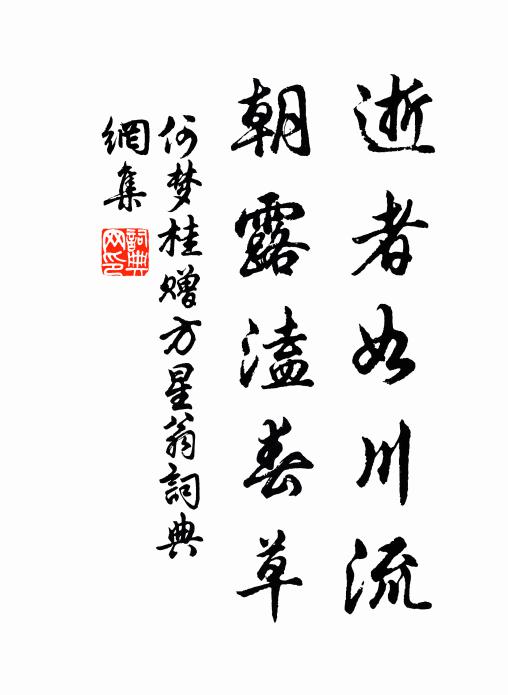 逝者如川流
朝露溘春草
何梦桂赠方星翁詞典
網集
詞典
网印